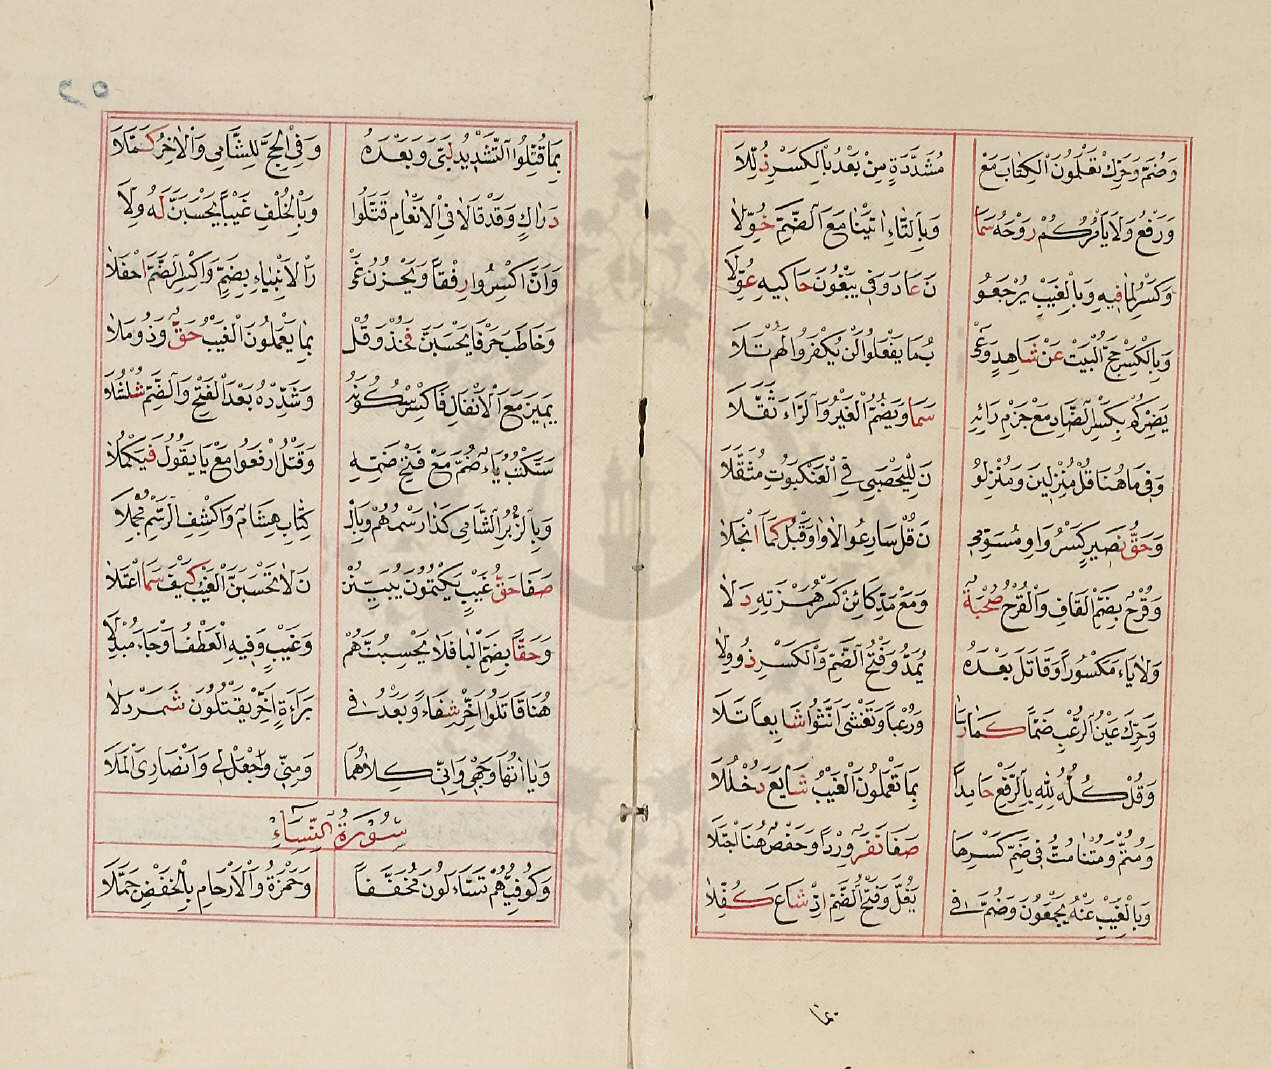 وَضُمَّ وَحَرِّكْ تَعْلَمُونَ الْكِتَابَ مَعْ مُشَدَّدَةٍ مِنْ بَعْدُ بِالْكَسْرِ ذُلِّلَا
وَرَفْعُ وَلَا يَأْمُرْكُمُ رَوْحُهُ سَمَا وَبِالتَّاءِ اٰتَيْنَا مَعَ الضَّمِّ خُوِّلَا
وَكَسْرُ لِمَا فِيهِ وَبِالْغَيْبِ يُرْجَعُو نَ عَادَ وَفِي يَبْغُونَ حَاكِيهِ عُوِّلَا
وَبِالْكَسْرِ حَجُّ الْبَيْتِ عَنْ شَاهِدٍ وَغَيْ بُ مَا يَفْعَلُوا لَنْ يُكْفَرُوا لَهُمْ تَلَا
يَضِرْكُمْ بِكَسْرِ الضَّادِ مَعْ جَزْمِ رَائِهِ سَمَا وَيَضُمُّ الْغَيْرُ وَالرَّاءَ ثَقَّلَا
وَفِي مَا هُنَا قُلْ مُنْزِلِينَ وَمُنْزِلُو نَ لِلْيَحْصَبِي فِي الْعَنْكَبُوتِ مُثَقَّلَا
وَحَقُّ نَصِيرٍ كَسْرُ وَاوِ مُسَوِّمِي نَ قُلْ سَارِعُوا لَا وَاوَ قَبْلُ كَمَا انْجَلَا
وَقُرْحٌ بِضَمِّ الْقَافِ وَالْقُرْحُ صُحْبَةٌ وَمَعْ مَدِّ كَائِنْ كَسْرُ هَمْزَتِهِ دَلَا
وَلَا يَاءَ مَكْسُوراً وَقَاتَلَ بَعْدَهُ يُمَدُّ وَفَتْحُ الضَّمِّ وَالْكَسْرِ ذُو وِلَا
وَحَرِّكَ عَيْنُ الرُّعْبِ ضَمًّا كَمَا رَسَا وَرُعْباً وَتَغْشَى اَنَّثُوا شَايِعاً تَلَا
وَقُلْ كُلُّهُ لِلّٰهِ بِالرَّفْعِ حَامِداً بِمَا تَعْمَلُونَ الْغَيْبُ شَايَعَ دُخْلُلَا
وَمُتُّمْ وَمُتْنَا مُتُّ فِي ضَمِّ كَسْرِهَا صَفَا نَفَرٌ وِرْداً وَحَفْصٌ هُنَا اجْتَلَا
وَبِالْغَيْبِ عَنْهُ يَجْمَعُونَ وَضُمَّ فِي يَغُلَّ وَفَتْحُ الضَّمِّ اِذْ شَاعَ كُفِّلَا
بِمَا قُتِلُوا التَّشْدِيدُ لَبَّى وَبَعْدَهُ وَفِي الْحَجِّ لِلشَّامِي وَالْاٰخِرُ كَمَّلَا
دَرَاكِ وَقَدْ قَالَا فِي الْاَنْعَامِ قَتَّلُوا وَبِالْخُلْفِ غَيْباً يَحْسَبَنَّ لَهُ وِلَا
وَاَنَّ اكْسِرُوا رِفْقاً وَيَحْزُنُ غَيْ رَ الْاَنْبِيَاءِ بِضَمٍّ وَاكْسِرِ الضَّمَّ اَحْفَلَا
وَخَاطَبَ حَرْفَا يَحْسَبَنَّ فَخُذْ وَقُلْ بِمَا يَعْمَلُونَ الْغَيْبُ حَقٌّ وَذُو مَلَا
يَمِيزَ مَعَ الْاَنْفَالِ فَاكْسِرْ سُكُونَهُ وَشَدِّدْهُ بَعْدَ الْفَتْحِ وَالضَّمِّ شُلْشُلَا
سَنَكْتُبُ يَاءٌ ضُمَّ مَعْ فَتْحِ ضَمِّهِ وَقَتْلُ ارْفَعُوا مَعْ يَا يَقُولُ فَيَكْمُلَا
وَبِالزُّبُرِ الشَّامِي كَذَا رَسْمُهُمْ وَبِالْ كِتَابِ هِشَامٌ وَاكْشِفِ الرَّسْمَ مُجْمِلَا
صَفَا حَقُّ غَيْبٍ يَكْتُمُونَ يُبَيِّنُنْ نَ لَا تَحْسَبَنَّ الْغَيْبُ كَيْفَ سَمَا اعْتَلَا
وَحَقًّا بِضَمِّ الْبَا فَلَا يَحْسِبُنَّهُمْ وَغَيْبٍ وَفِيهِ الْعَطْفُ اَوْ جَاءَ مُبْدَلَا
هُنَا قَاتَلُوا اَخِّرْ شَفَاءً وَبَعْدُ فِي بَرَاءَةَ اَخِّرْ يَقْتُلُونَ شَمَرْدَلَا
وَيَا اٰتُهَا وَجْهِي وَاِنِّي كِلَاهُمَا وَمِنِّي وَاجْعَلْ لِي وَاَنْصَارِيَ الْمَلَا
سُورَةُ النِّسَاءِ
وَكُوفِيُّهُمْ تَسَّاءَلُونَ مُخَفَّفاً وَحَمْزَةُ وَالْاَرْحَامِ بِالْخَفْضِ جَمَّلَا